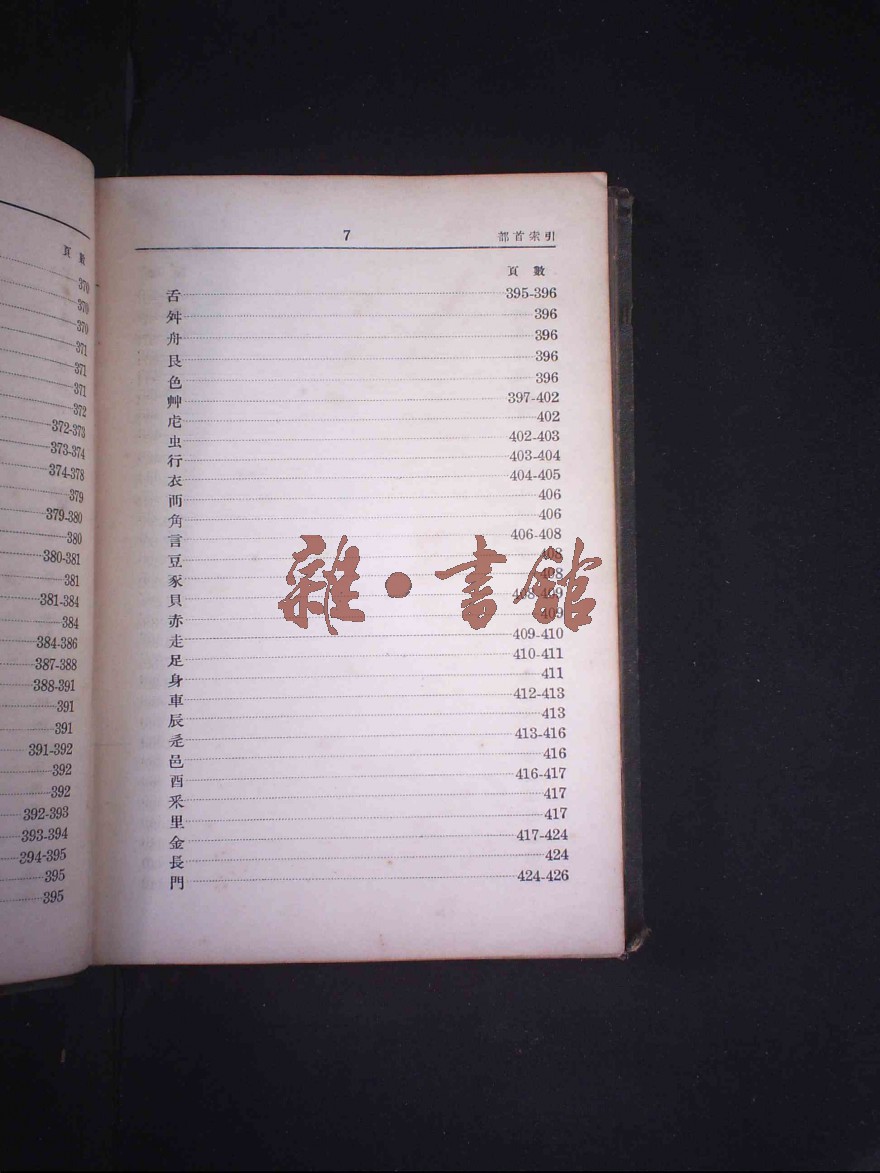 頁數
370
370
370
371
371
371
372
372-373
373-374
374-378
379
379-380
380
380-381
381
381-384
384
384-386
387-388
388-391
391
391
391-392
392
392
392-393
393-394
394-395
395
395
7 部首索引
頁數
舌 395-396
舛 396
舟 396
艮 396
色 396
艸 397-402
虍 402
虫 402-403
行 403-404
衣 404-405
襾 406
角 406
言 406-408
豆 408
豕 408
貝 408-409
赤 409
走 409-410
足 410-411
身 411
車 412-413
辰 413
辵 413-416
邑 416
酉 416-417
釆 417
里 417
金 417-424
長 424
門 424-426
雜·書館